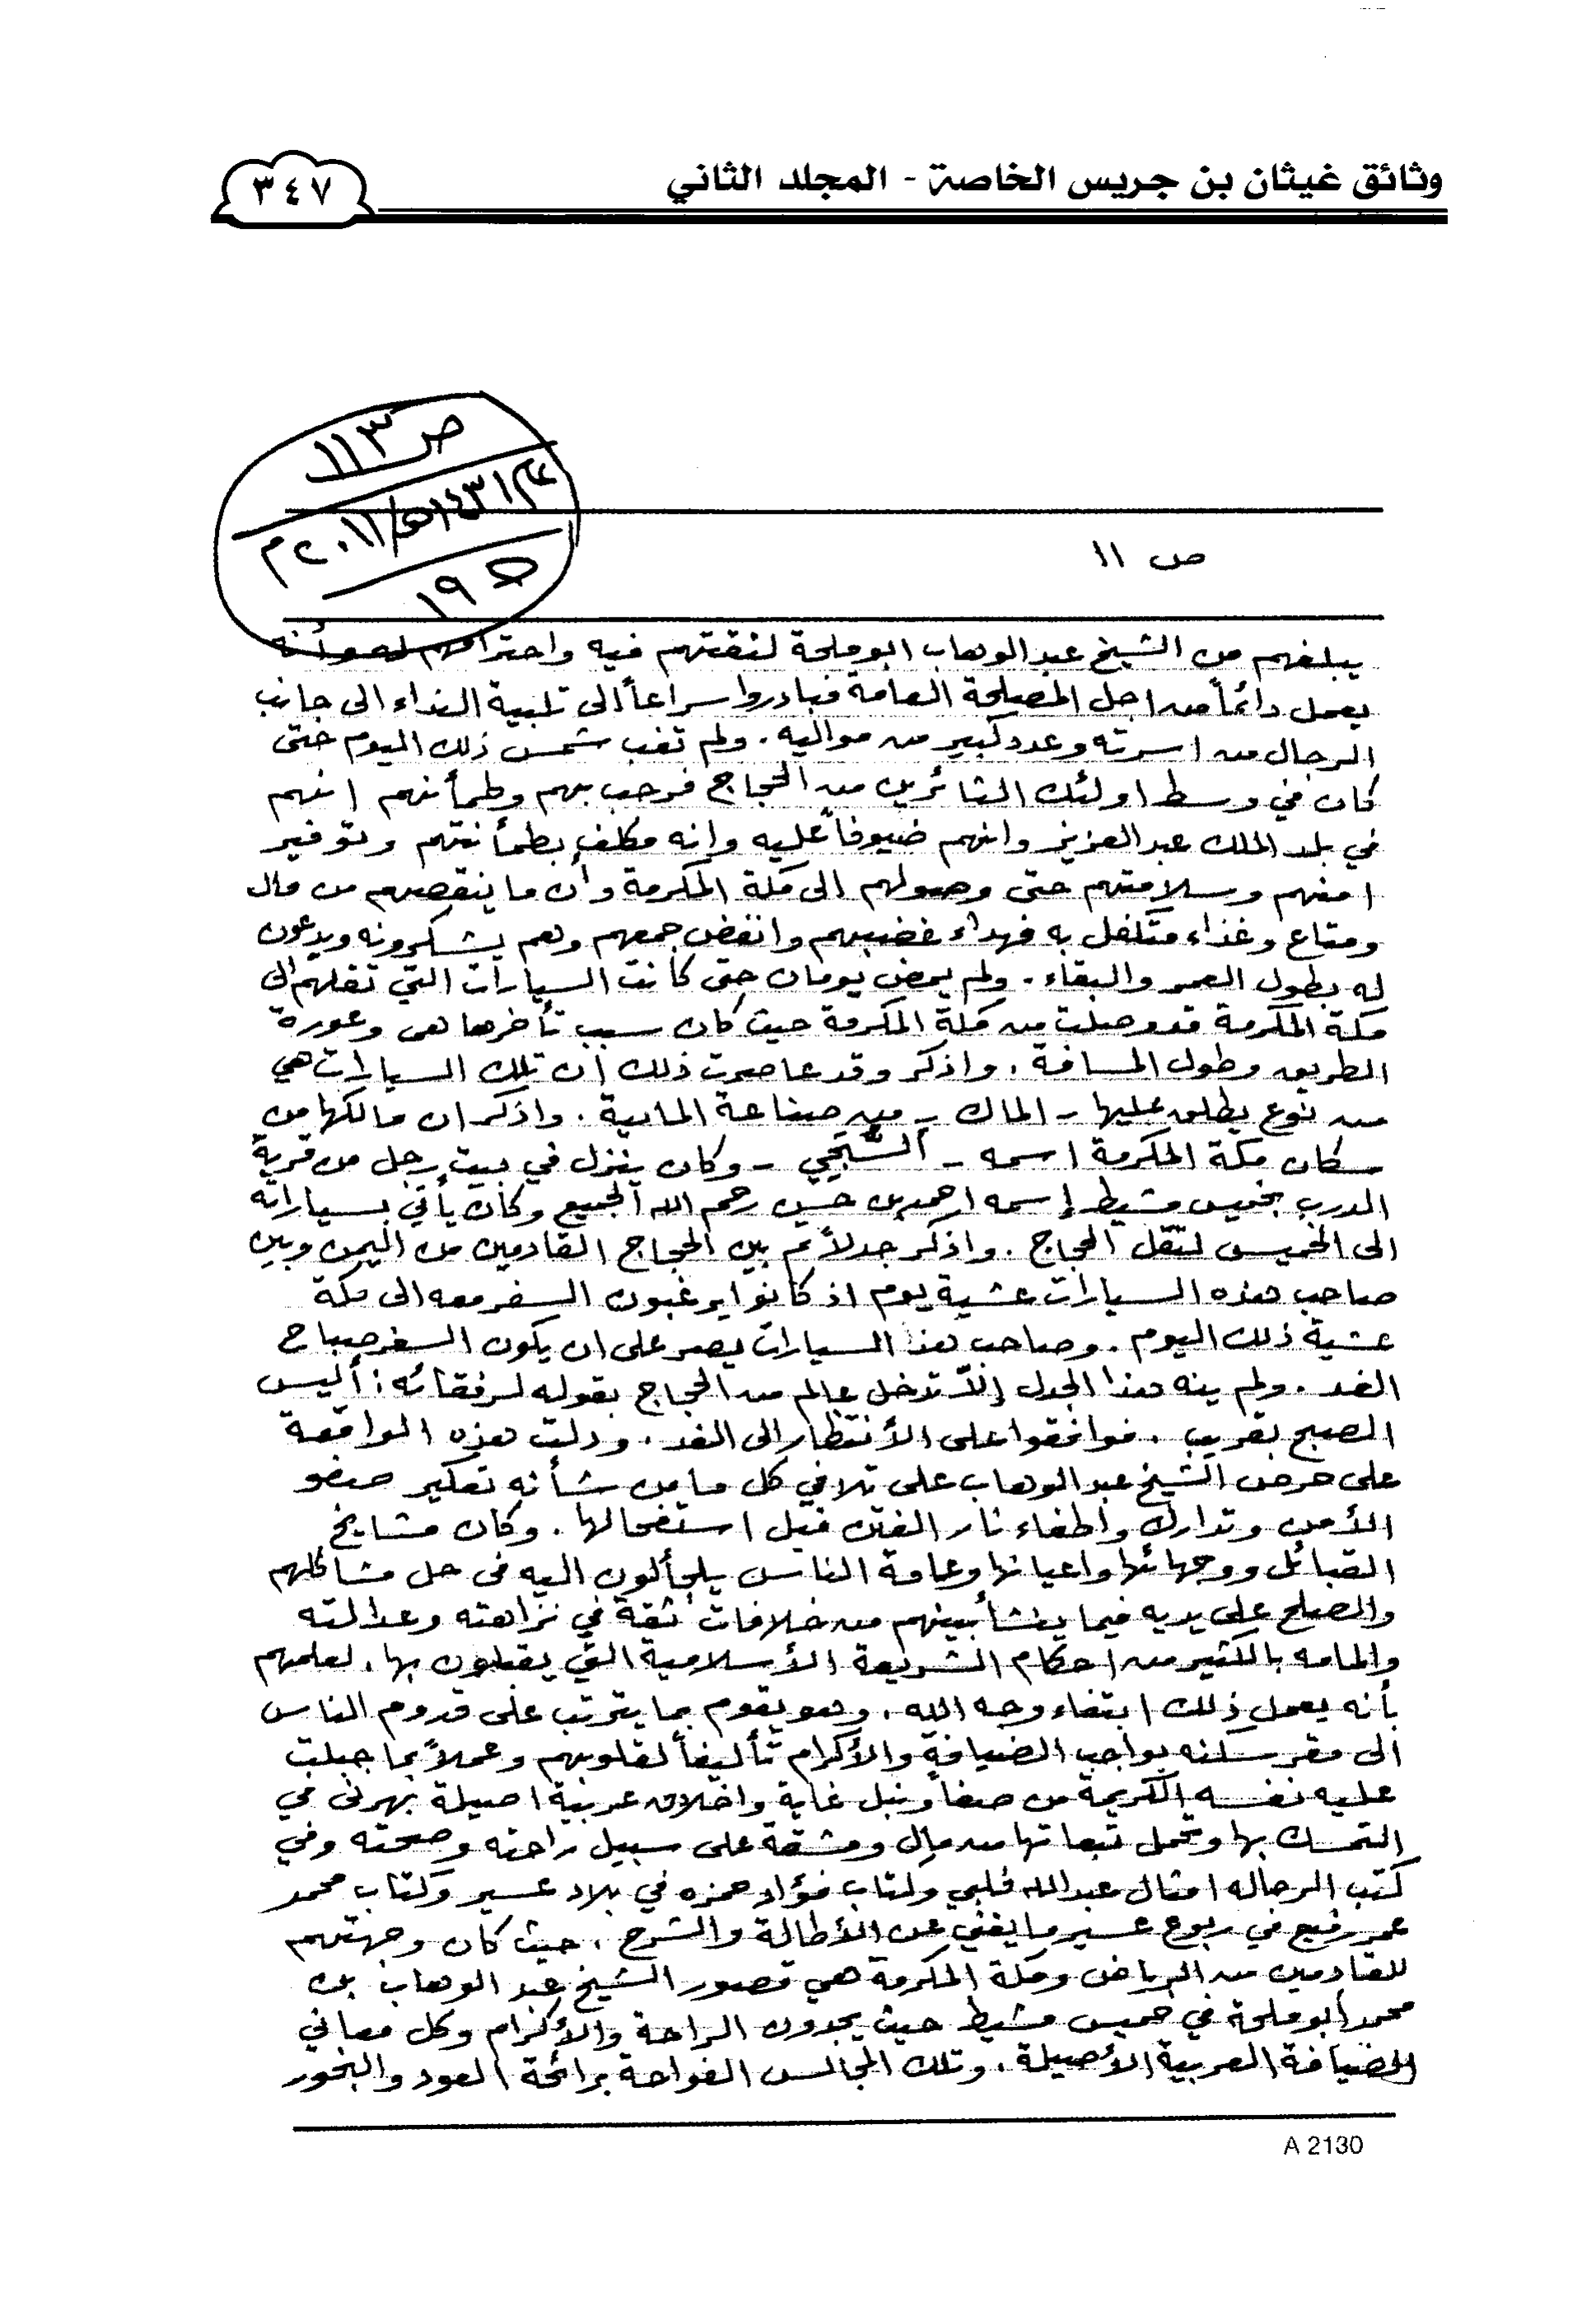 وثائق غيثان بن جريس الخاصة - المجلد الثاني
٣٤٧
ص ١١٣
١٩٥
ص ١١
يبلغهم من الشيخ عبدالوهاب ابوملحة لثقتهم فيه واحترامهم له وأنه
يعمل دائماً من اجل المصلحة العامة فبادروا سراعاً الى تلبية النداء الى جانب
الرجال من اسرته وعدد كبير من مواليه . ولم تغب شمس ذلك اليوم حتى
كان في وسط اولئك الثائرين من الحجاج فرحب بهم وطمأنهم انهم
في بلد الملك عبدالعزيز وانهم ضيوفاً عليه وانه مكلف بطمأنتهم وتوفير
امنهم وسلامتهم حتى وصولهم الى مكة المكرمة وأن ما ينقصهم من مال
ومتاع وغذاء متكفل به فهداء غضبهم وانفض جمعهم وهم يشكرونه ويدعون
له بطول العمر والبقاء . ولم يمض يومان حتى كانت السيارات التي تقلهم الى
مكة المكرمة قد وصلت من مكة المكرمة حيث كان سبب تأخرها هى وعورة
الطريق وطول المسافة . واذكر وقد عاصرت ذلك أن تلك السيارات هي
من نوع يطلق عليها - الماك - من صناعة المانية . واذكر ان مالكها من
سكان مكة المكرمة اسمه - الشبجي - وكان ينزل في بيت رجل من قرية
الدرب بخميس مشيط إسمه احمد بن حسين رحم الله الجميع وكان يأتي بسياراته
الى الخميس لنقل الحجاج . واذكر جدلاً تم بين الحجاج القادمين من اليمن وبين
صاحب هذه السيارات عشية يوم اذ كانوا يرغبون السفر معه الى مكة
عشية ذلك اليوم . وصاحب هذا السيارات يصر على ان يكون السفر صباح
الغد . ولم ينه هذا الجدل إلاّ تدخل عالم من الحجاج بقوله لرفقائه : أليس
الصبح بقريب . فوافقوا على الأنتظار الى الغد . ودلت هذه الواقعة
على حرص الشيخ عبدالوهاب على تلافي كل ما من شأنه تعكير صفو
الأمن وتدارك واطفاء نار الفتن قبل استفحالها . وكان مشايخ
القبائل ووجهائها واعيانها وعامة الناس يلجألون اليه فى حل مشاكلهم
والصلح على يديه فيما ينشأ بينهم من خلافات ثقة في نزاهته وعدالته
والمامه بالكثير من احكام الشريعة الأسلامية التي يقبلون بها . لعلمهم
بأنه يعمل ذلك ابتغاء وجه الله . وهو يقوم بما يترتب على قدوم الناس
الى مقر سكنه بواجب الضيافة والأكرام تأليفاً لقلوبهم وعملاً بما جبلت
عليه نفسه الكريمة من صفاً ونبل غاية واخلاق عربية اصيلة بهرنى في
التمسك بها وتحمل تبعاتها من مال ومشقة على سبيل راحته وصحته وفي
كتب الرحاله امثال عبدالله فلبي وكتاب فؤاد حمزه في بلاد عسير وكتاب محمد
عمر رفيع في ربوع عسير ما يغني عن الأطالة والشرح . حيث كان وجهتهم
للقادمين من الرياض ومكة المكرمة هي قصور الشيخ عبد الوهاب بن
محمد أبوملحة في خميس مشيط حيث يجدون الراحة والأكرام وكل معاني
الضيافة العربية الأصيلة . وتلك المجالس الفواحة برائحة العود والبخور
A 2130